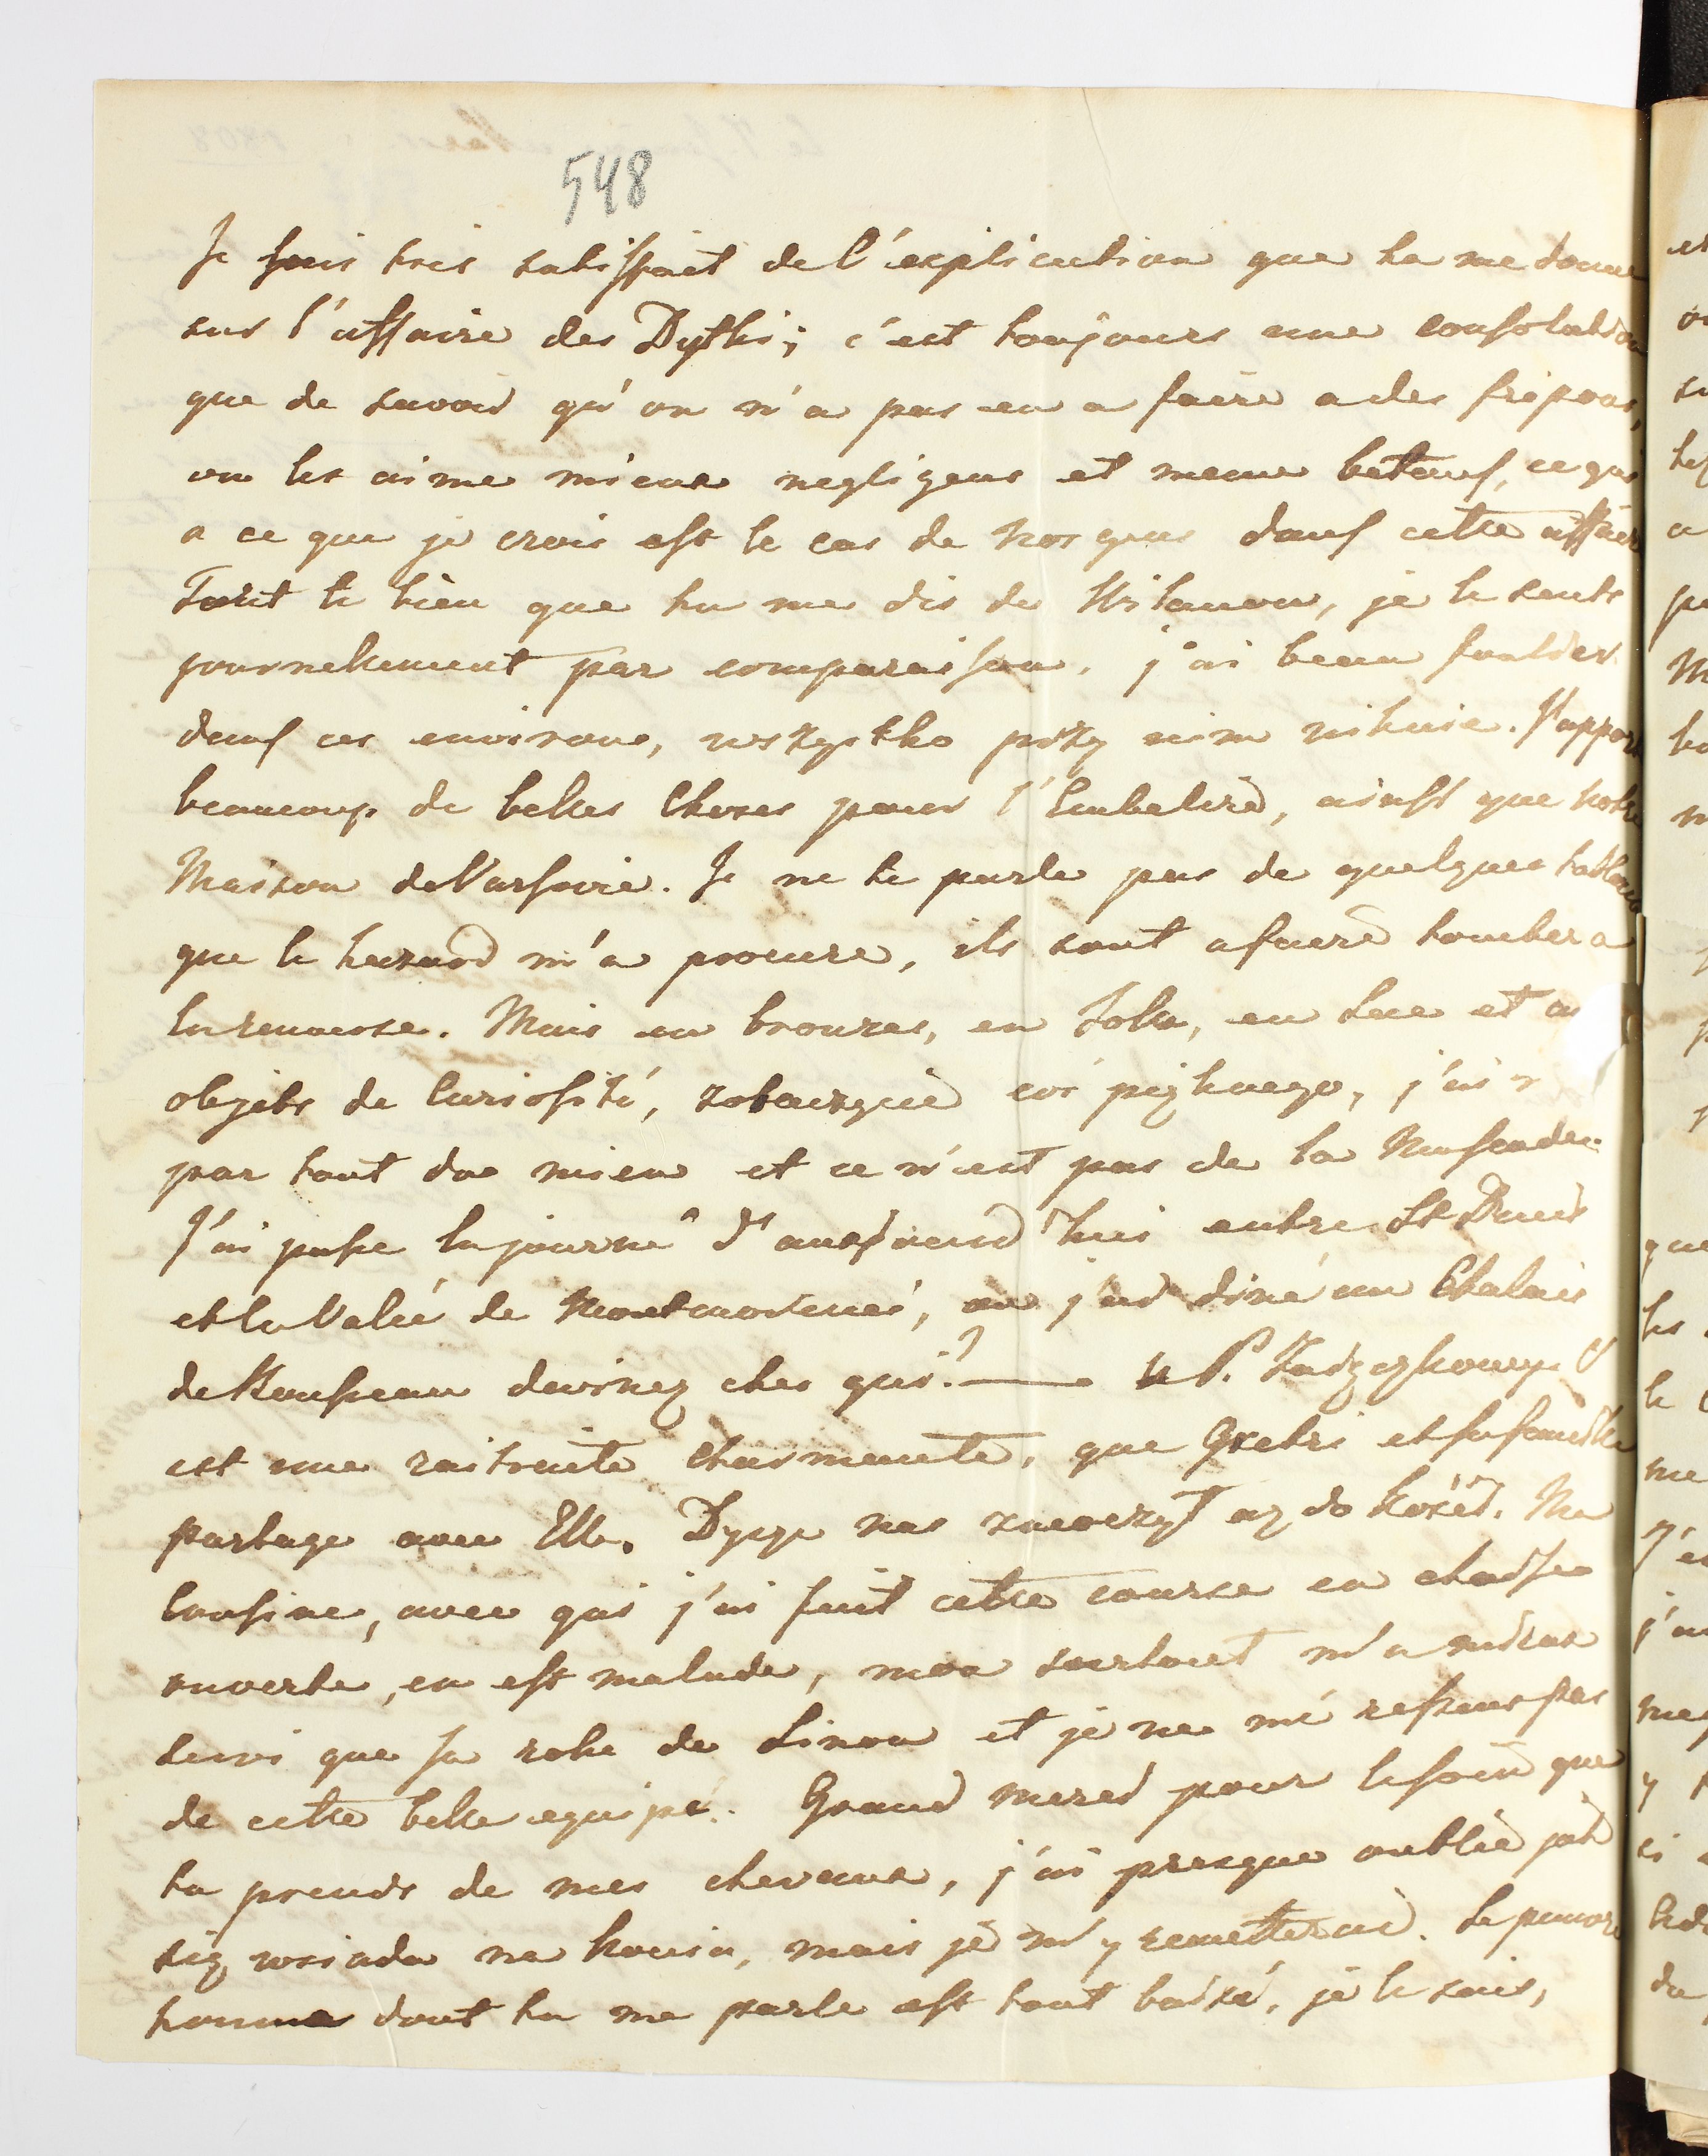 548
Je suis tres satisfait de l'explication que tu me donne
sur l'affaire des Dytki; c'est toujours une consolation
que de savoir qu'on n'a pas eu a faire a des fripons,
on les aime mieux negligens et meme betous, ce qui
a ce que je crois est le cas de nos gens dans cette affaire
Tout le bien que tu me dis de Wilanow, je le sents
journellement par comparaison. j'ai beau
dans ces environs, wszystko przy nim niknie. J'apporte
beaucoup de belles choses pour l'embelire, ainsi que notre
Maison de Varsovie. Je ne te parle pas de quelques tableaux
que le hazard m'a procuré, ils sont a faire tomber a
la renverse. Mais en bronzes, en Tola, en Lac et a
objets de Curiosité, zobaczycie coś pięknego, j'ai
par tout du mieu et ce n'est pas de la
J'ai passe la journé d'aujourd'hui entre St Denis
et la Valée de Montmorenci, ou j'ai diné au Chalais
de Rousseau devinez ches qui? — u P. C
est une raitraite charmante, que Gretri et sa famille
partage avec Elle. Dyszcz nas zmoczył aż do kości. Ma
Cousine, avec qui j'ai fait cette course en chaise
ouverte, en est malade, mon surtout m'a mieux
servi que sa robe de Linon et je ne me ressens pas
de cette belle equipé. Grand merci pour le soin que
tu prends de mes chevaux, j'ai presque oublié jak
się wsiada na konia, mais je m'y remetterai. Le pauvre
homme dont tu me parle est tout baissé, je le sais,